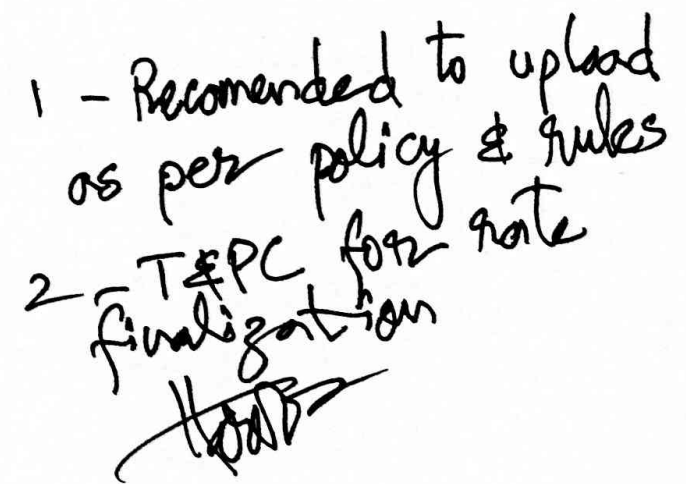 1 - Recomended to upload
as per policy & rules
2 - T&PC for rate
finalization